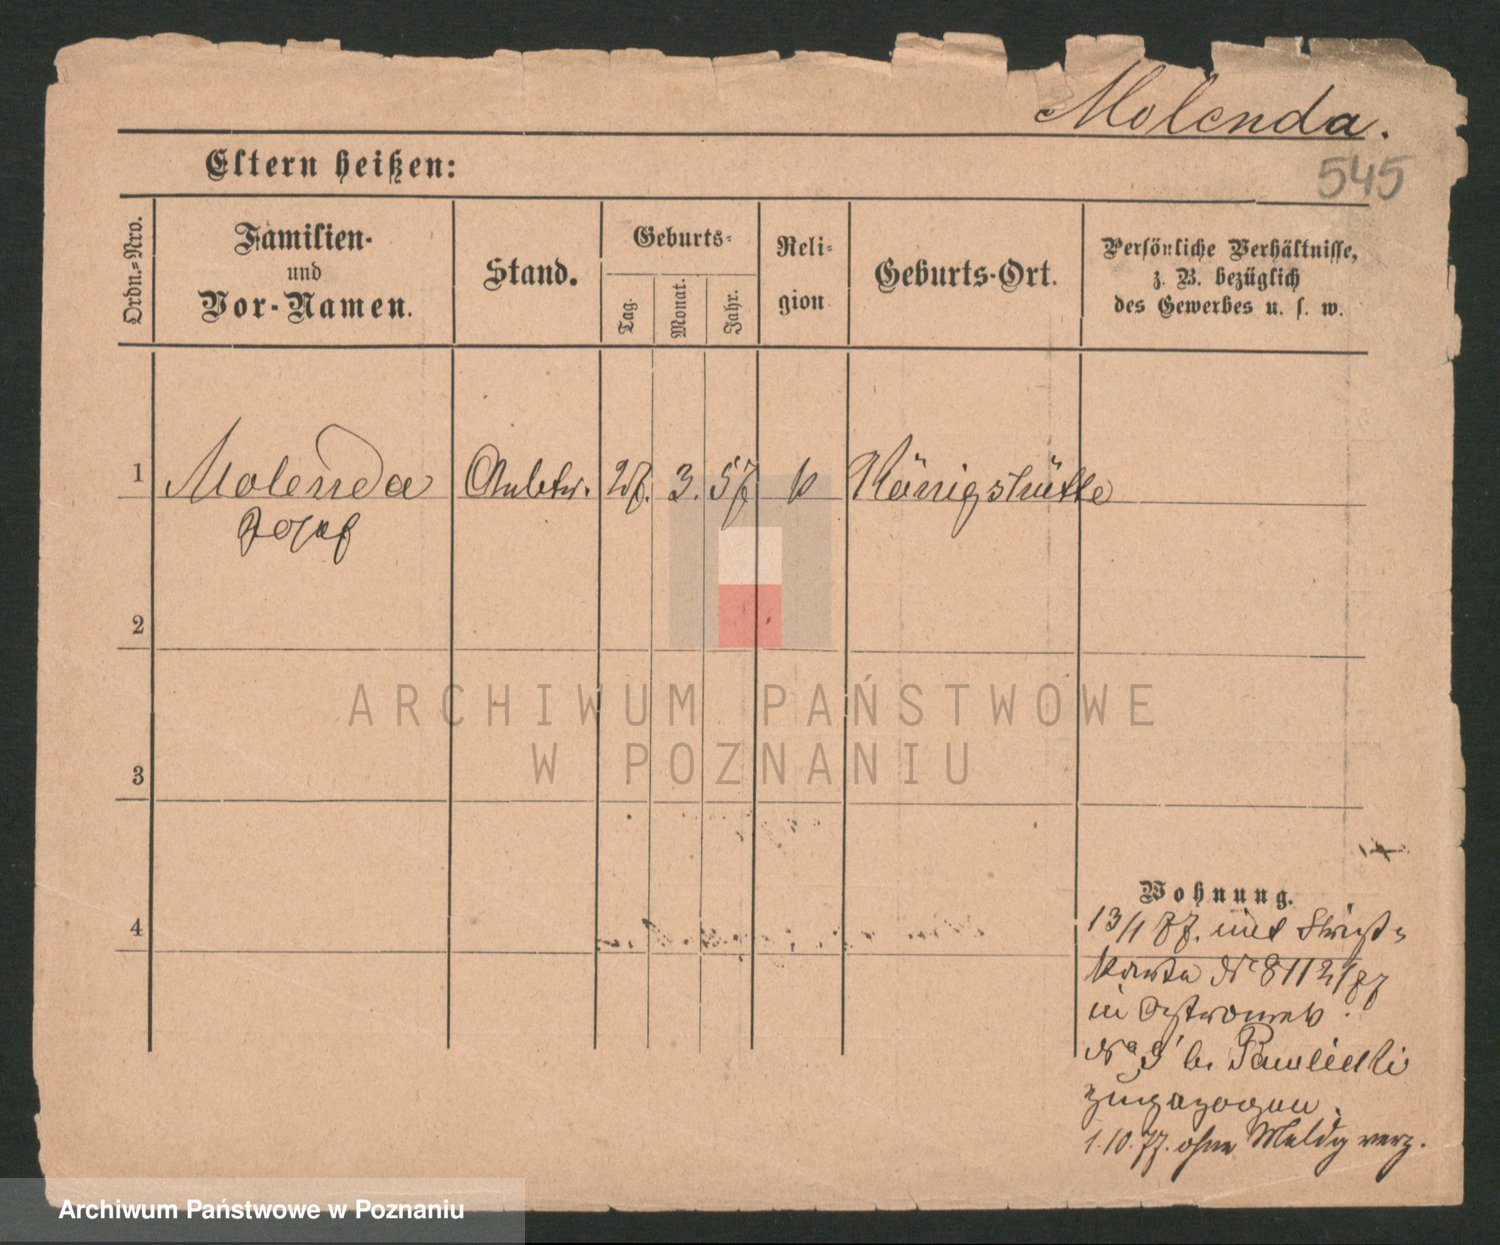 Molenda.
545
Eltern heißen:
Ordn.-Nro.
Familien-
und
Vor-Namen.
Stand.
Geburts-
Tag.
Monat.
Jahr.
Reli-
gion
Geburts-Ort.
Persönliche Verhältnisse,
z. B. bezüglich
des Gewerbes u. s. w.
1
Molenda
27.
3.
57
k
Königshütte
Josef
2
ARCHIWUM PAŃSTWOWE
W POZNANIU
3
4
Wohnung.
13/1 77. mit
karte No 8112/77
in Ostrowek
No 9 bei Pawlicki
zugezogen.
1.10.77. ohne Meldg verz.
Archiwum Państwowe w Poznaniu